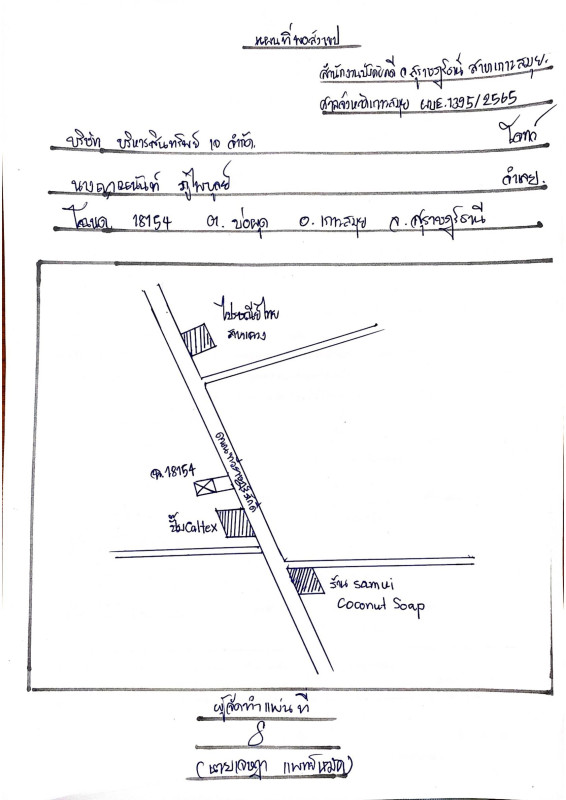 แผนที่พอสังเขป
สำนักงานบังคับคดี จ.สุราษฎร์ธานี สาขาเกาะสมุย.
ศาลจังหวัดเกาะสมุย ผบE.1395/2565
บริษัท บริหารสินทรัพย์ 10 จำกัด. โจทก์
นาง ภู่ไพบูลย์ จำเลย.
โฉนด 18154 ต. บ่อผุด อ. เกาะสมุย จ. สุราษฎร์ธานี
ไปรษณีย์ไทย
ถนนทวีราษฎร์ภักดี
ฉ.18154
ปั๊มCaltex
ร้าน samui
Coconut Soap
ผู้จัดทำแผนที่
(นายเจษฎา แพทย์หมัด)